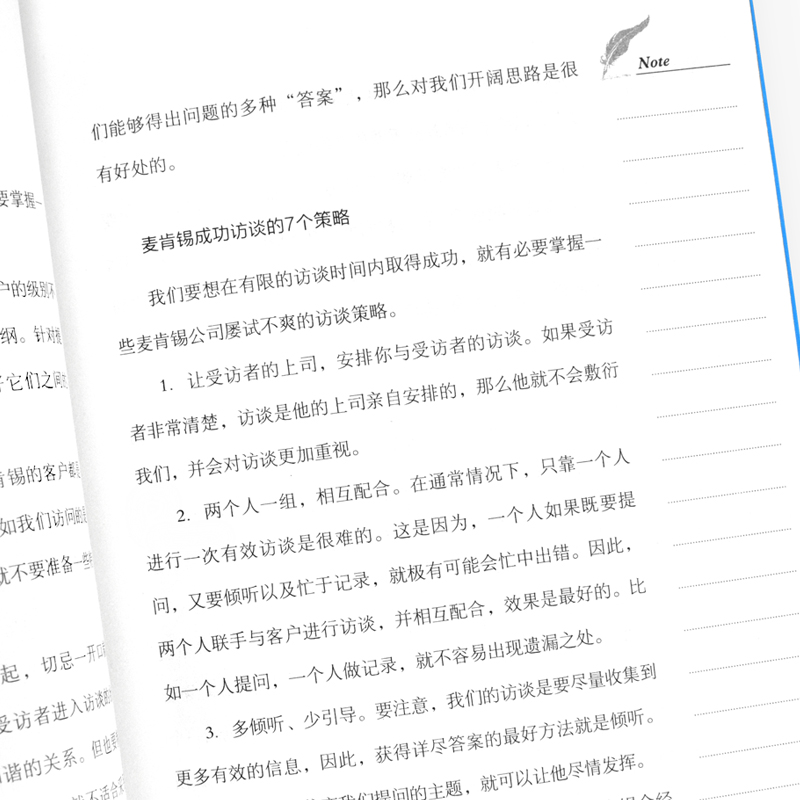 要掌握一
户的级别不
纲。针对
它们之间的
肯锡的客户都是
如我们访问的是
就不要准备一些
起，切忌一开口
受访者进入访谈的
谐的关系。但也要
就不适合采
Note
们能够得出问题的多种“答案”，那么对我们开阔思路是很
有好处的。
麦肯锡成功访谈的7个策略
我们要想在有限的访谈时间内取得成功，就有必要掌握一
些麦肯锡公司屡试不爽的访谈策略。
1. 让受访者的上司，安排你与受访者的访谈。如果受访
者非常清楚，访谈是他的上司亲自安排的，那么他就不会敷衍
我们，并会对访谈更加重视。
2. 两个人一组，相互配合。在通常情况下，只靠一个人
进行一次有效访谈是很难的。这是因为，一个人如果既要提
问，又要倾听以及忙于记录，就极有可能会忙中出错。因此，
两个人联手与客户进行访谈，并相互配合，效果是最好的。比
如一个人提问，一个人做记录，就不容易出现遗漏之处。
3. 多倾听、少引导。要注意，我们的访谈是要尽量收集到
更多有效的信息，因此，获得详尽答案的最好方法就是倾听。
我们提问的主题，就可以让他尽情发挥。